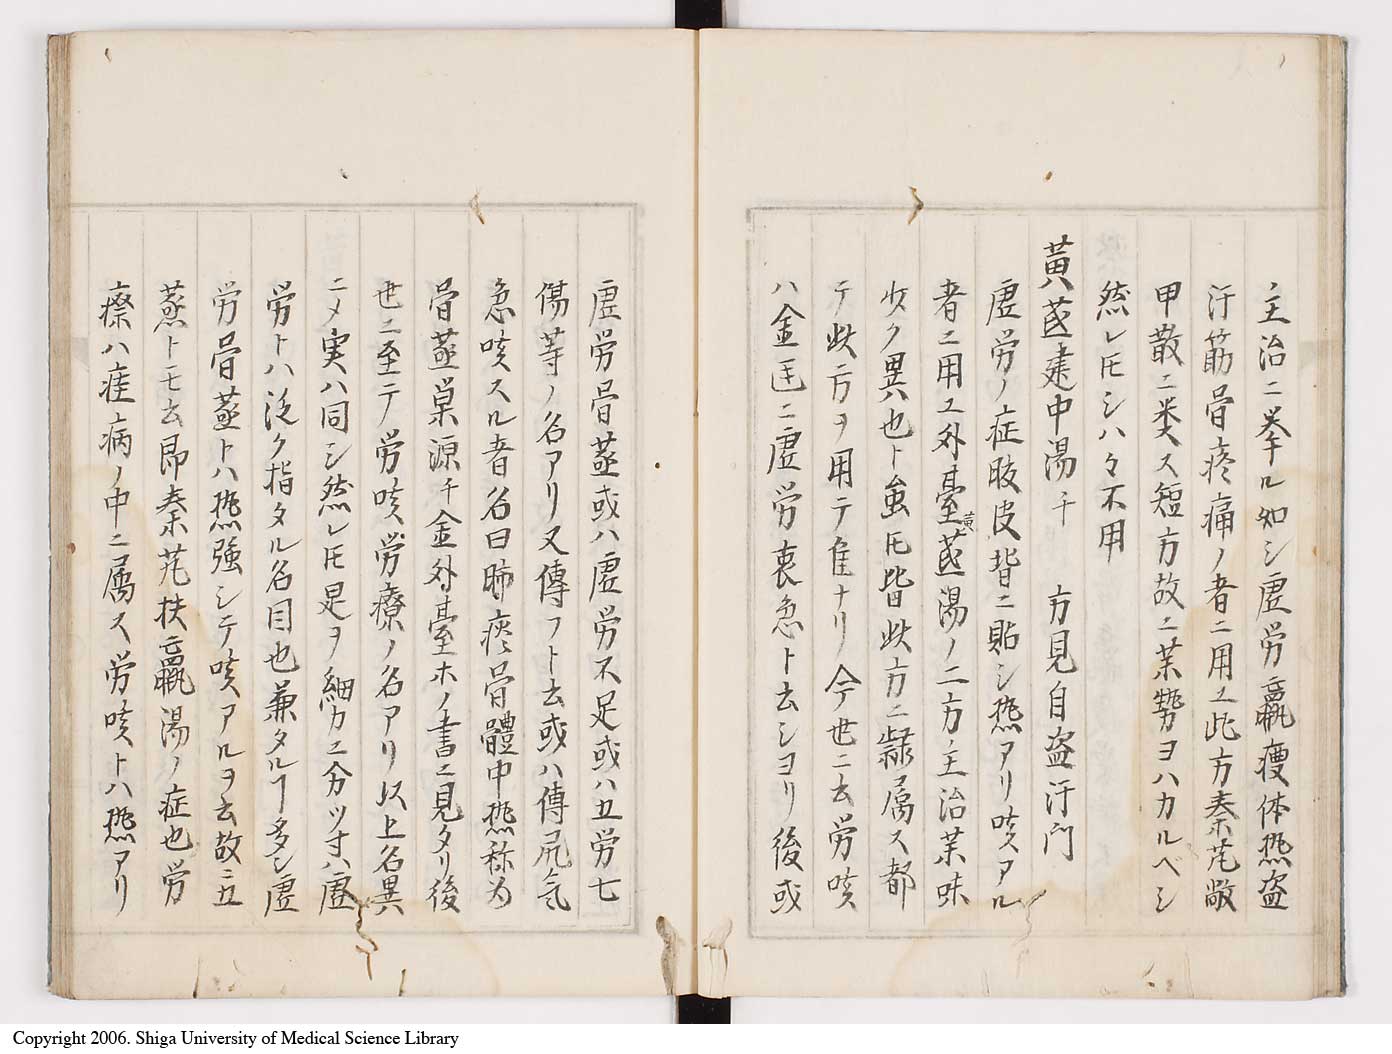 主治ニ挙ル如シ虚労羸痩体熱盗
汗筋骨疼痛ノ者ニ用ユ此方秦艽鱉
甲散ニ类ス短方故ニ薬勢ヨハカルベシ
然レ𪜈シハ々不用
黄蓍建中湯千 方見自盗汗門
虚労ノ症肢皮背ニ貼シ熱アリ咳アル
者ニ用ユ外臺黄蓍湯ノ二方主治薬味
少ク異也ト虽𪜈皆此方ニ隷属ス都
テ此方ヲ用テ隹ナリ今世ニ云労咳
ハ金匡ニ虚労裏急ト云シヨリ後或
虚労骨蒸或ハ虚労不足或ハ五労七
傷等ノ名アリ又傳フト云或ハ傳尸气
急咳スル者名曰肺痿骨體中熱称为
骨蒸巣源千金外臺ホノ書ニ見タリ後
世ニ至テ労咳労療ノ名アリ以上名異
ニメ実ハ同シ然レ𪜈是ヲ細カニ分ツ寸ハ虚
労トハ泛ク指タル名目也兼タルヿ多シ虚
労骨蒸トハ熱強シテ咳アルヲ云故ニ五
蒸トモ云即秦艽扶羸湯ノ症也労
瘵ハ疰病ノ中ニ属ス労咳トハ熱アリ
Copyright 2006. Shiga University of Medical Science Library